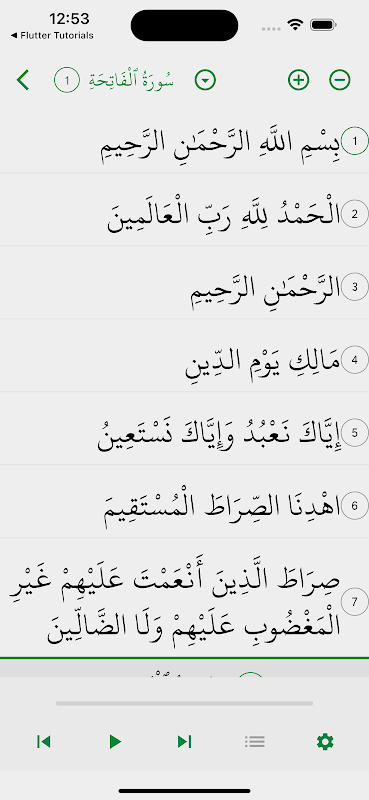 12:53
◀ Flutter Tutorials
سُورَةُ ٱلْفَاتِحَةِ 1
بِسْمِ اللَّهِ الرَّحْمَٰنِ الرَّحِيمِ 1
الْحَمْدُ لِلَّهِ رَبِّ الْعَالَمِينَ 2
الرَّحْمَٰنِ الرَّحِيمِ 3
مَالِكِ يَوْمِ الدِّينِ 4
إِيَّاكَ نَعْبُدُ وَإِيَّاكَ نَسْتَعِينُ 5
اهْدِنَا الصِّرَاطَ الْمُسْتَقِيمَ 6
صِرَاطَ الَّذِينَ أَنْعَمْتَ عَلَيْهِمْ غَيْرِ
الْمَغْضُوبِ عَلَيْهِمْ وَلَا الضَّالِّينَ 7